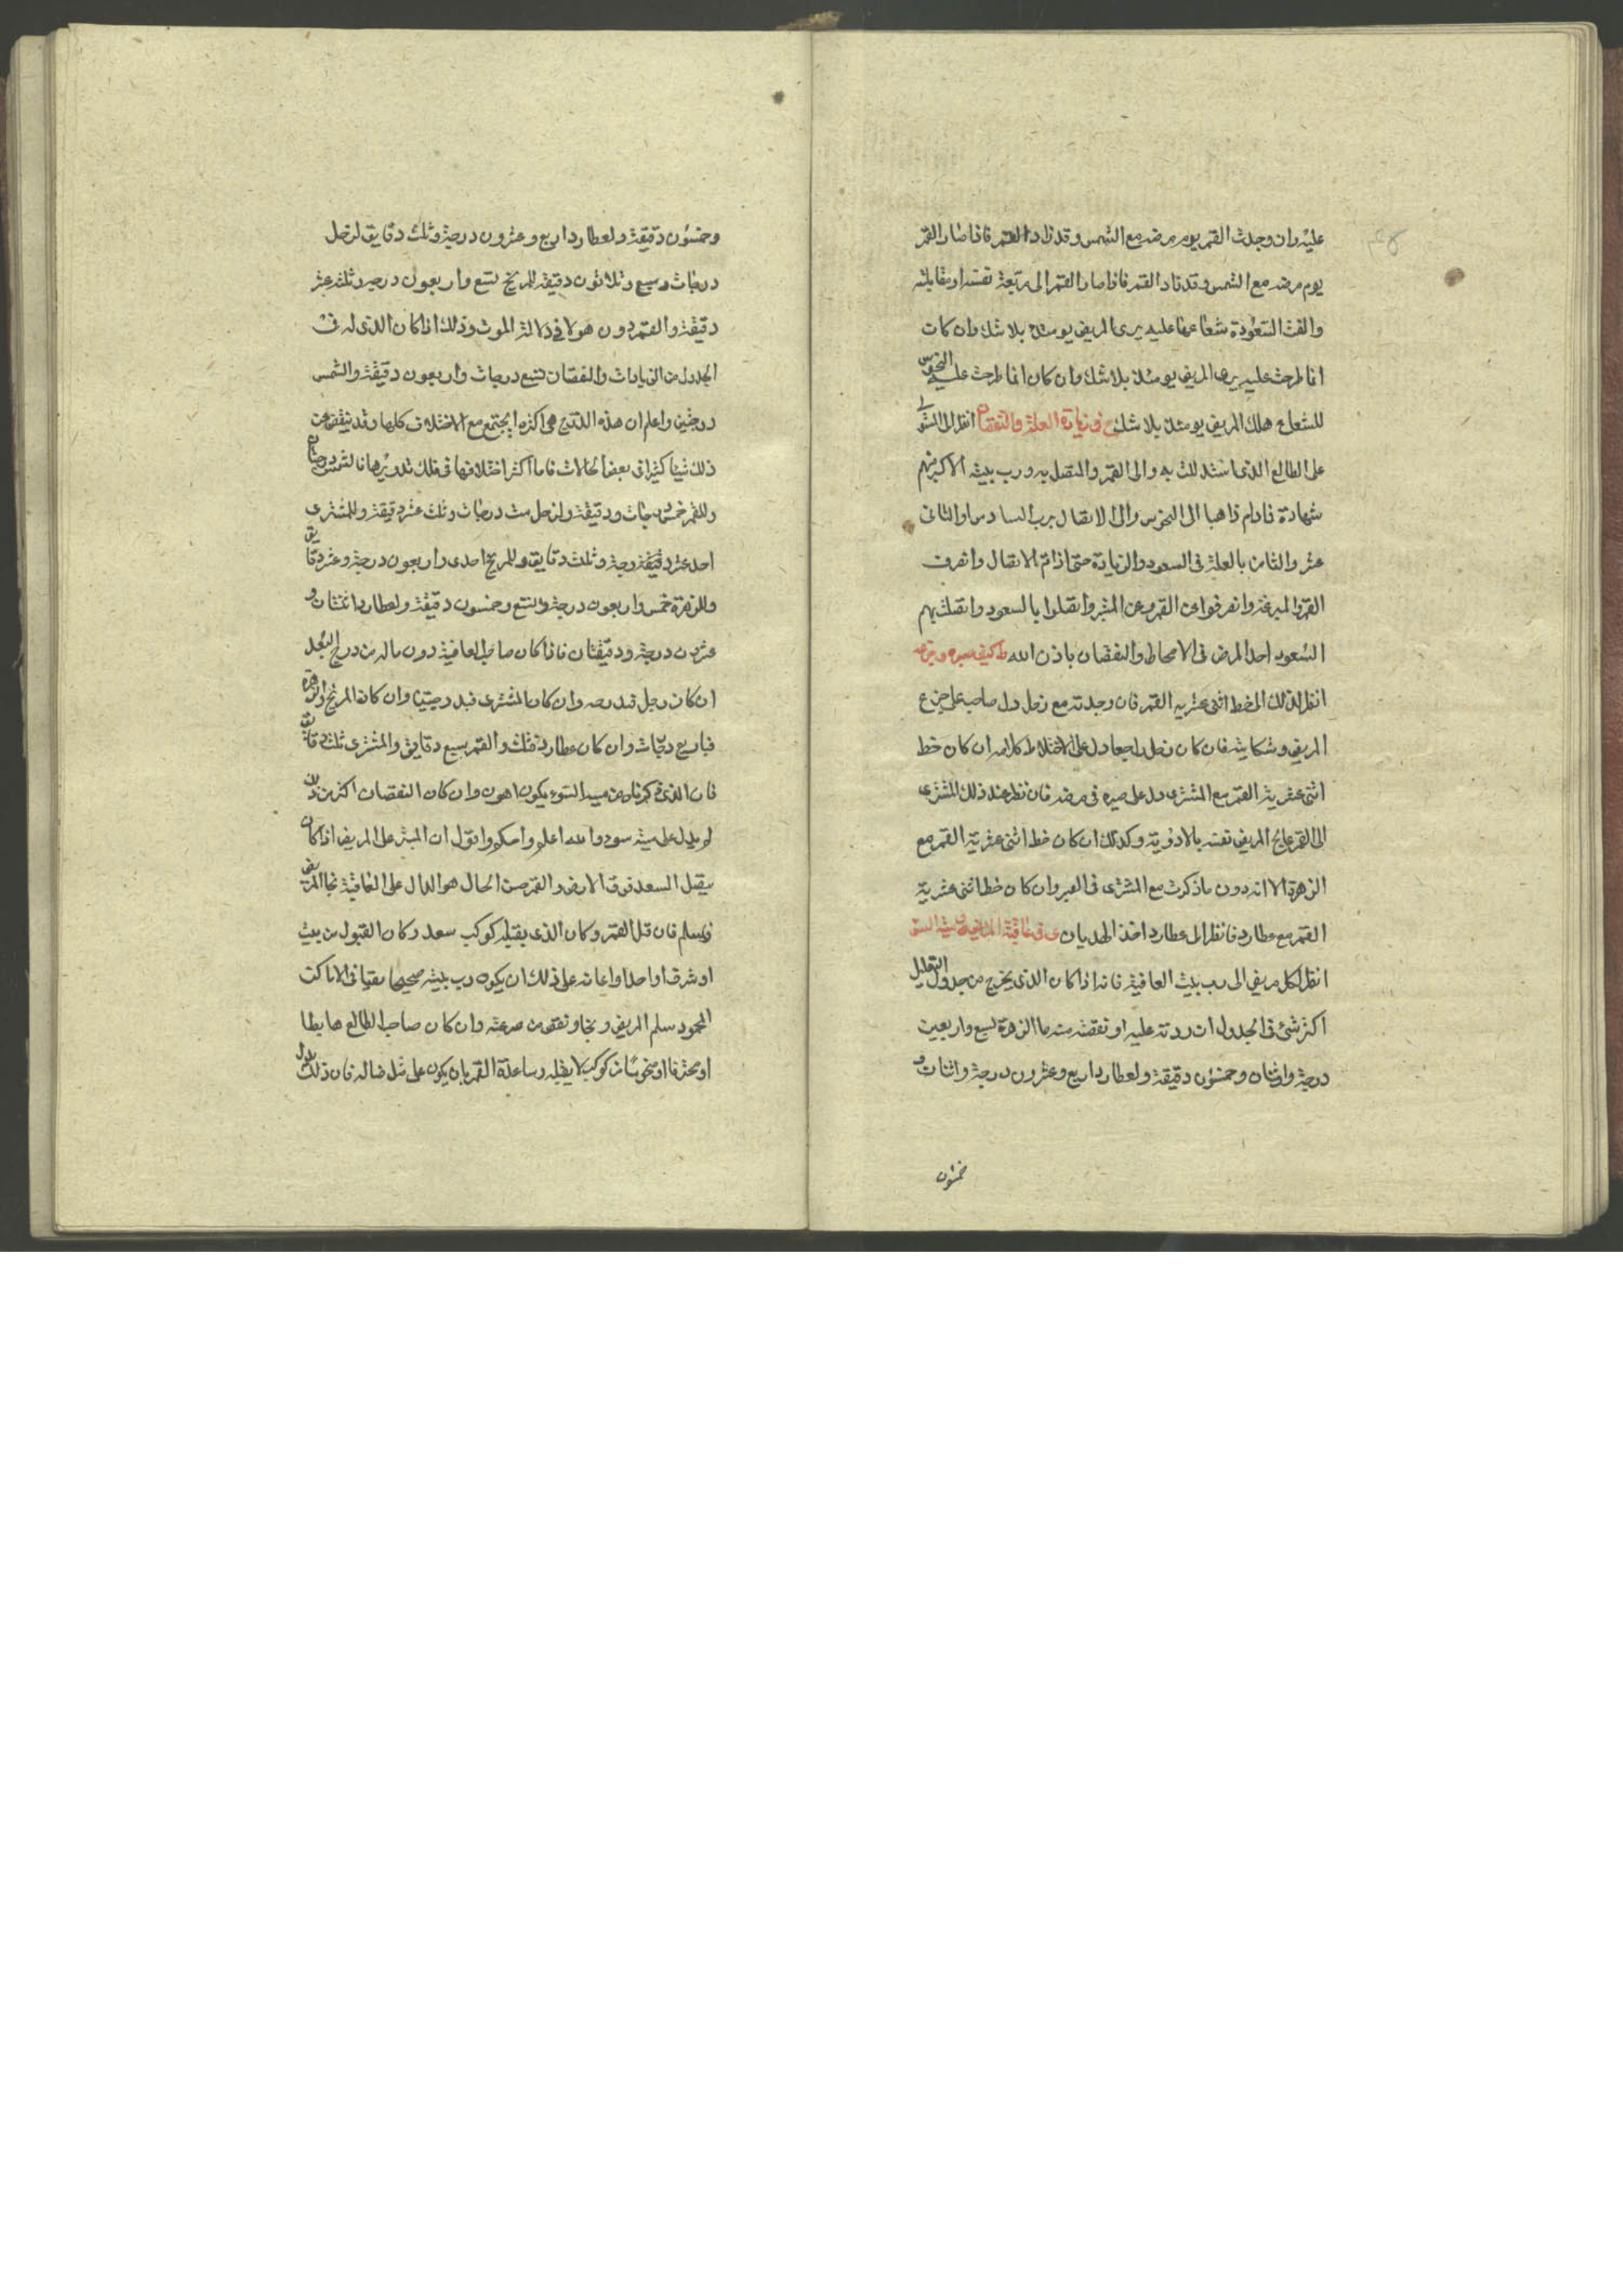 عليه وان وجدت القمر يوم مرضه مع الشمس وقد زاد القمر فاذا صار القمر
يوم مرضه مع الشمس وقد زاد القمر فاذا صار القمر الى تربيعة نفسه او مقابلته
والقت السعودة شعاعها عليه يرى المريض يومئذ بلا شك وان كان
انما طرحت عليه يرى المريض يومئذ بلا شك وان كان انما طرحت عليه النحوس
للشعاع هلك المريض يومئذ بلا شك ح فى زيادة العلة والنقصان انظر الى المستولى
على الطالع الذى استدللت به والى القمر والمتصل به ورب بيته الاكبر منهم
شهادة فادام ذاهبا الى النحوس والى الاتصال برب السادس او الثانى
عشر والثامن بالعلة فى السعود والزيادة حتى اذا تم الاتصال وانصرف
القمر والمبرعة وانصرفوا عن القمر وعن المبتز واتصلوا بالسعود واتصلت بهم
السعود احد المرض فى الانحطاط والنقصان باذن الله ط كيف صبره ومرضه
انظر لذلك الى خط اثنى عشرية القمر فان وجدته مع زحل دل صاحبه على جزع
المريض وشكايته فان كان زحل راجعا دل على اختلاط كلامه ان كان خط
اثنى عشرية القمر مع المشترى دل على صبره فى مرضه فان نظر عند ذلك المشترى
الى القمر عالج المريض نفسه بالادوية وكذلك ان كان خط اثنى عشرية القمر مع
الزهرة الا انه دون ما ذكرت مع المشترى فى الصبر وان كان خط اثنى عشرية
القمر مع عطارد فانظر الى عطارد اخذ الهذيان ى فى عاقبة المرض ميتة السوء
انظر لكل مريض الى رب بيت العاقبة فانه اذا كان الذى يخرج من جدول التعديل
اكثر شئ فى الجدول ان زدته عليه او نقصته منه ما الزهرة تسع واربعين
درجة واثنان وخمسون دقيقة ولعطارد اربع وعشرون درجة واثنان و
خمسون
وخمسون دقيقة ولعطارد اربع وعشرون درجة وثلث دقايق لزحل
درجات وسبع وثلاثون دقيقة للمريخ تسع واربعون درجة وثلثة عشر
دقيقة والقمر دون هولا فى دلالة الموت وذلك اذا كان الذى له فى
الجدول من الزيادات والنقصان تسع درجات واربعون دقيقة والشمس
درجتين واعلم ان هذه الدرج هى اكثر ما يجتمع مع الاختلاف كلها وقد ينقص عن
ذلك شيئا كثيرا فى بعض الحالات فاما اكثر اختلافها فى فلك تدويرها فالشمس درجتان
وللقمر خمس درجات ودقيقة ولزحل ست درجات وثلث عشر دقيقة وللمشترى
احد عشر دقيقة درجة وثلث دقايق وللمريخ احدى واربعون درجة وعشر دقايق
وللزهرة خمس واربعون درجة وتسع وخمسون دقيقة ولعطارد اثنتان و
عشرون درجة ودقيقتان فاذا كان صاحب العاقبة دون ماله من درج البعد
ان كان زحل وان كان المشترى فبدرجتين وان كان المريخ والزهرة
فباربع درجات وان كان عطارد فثلث والقمر سبع دقايق والمشترى ثلث دقايق
فان الذى ذكرناه من ميتة السوء يكون اهون وان كان النقصان اكثر من ذلك
لم يدل على ميتة سوء والله اعلم واحكم واقول ان المبتز على المريض اذا كان
يتصل السعد فوق الارض والقمر حسن الحال هو الدال على العاقبة نجا المريض
وسلم فان قبل القمر وكان الذى يقبله كوكب سعد وكان القبول من بيت
او شرف او احدا واعانه على ذلك ان يكون رب بيته صحيحا نقيا فى الاماكن
المحمود سلم المريض ونجا ونقص من صرعته وان كان صاحب الطالع هابطا
او محترقا او منحوسا من كوكب لا يقبله وساعده القمر بان يكون على مثل حاله فان ذلك يدل